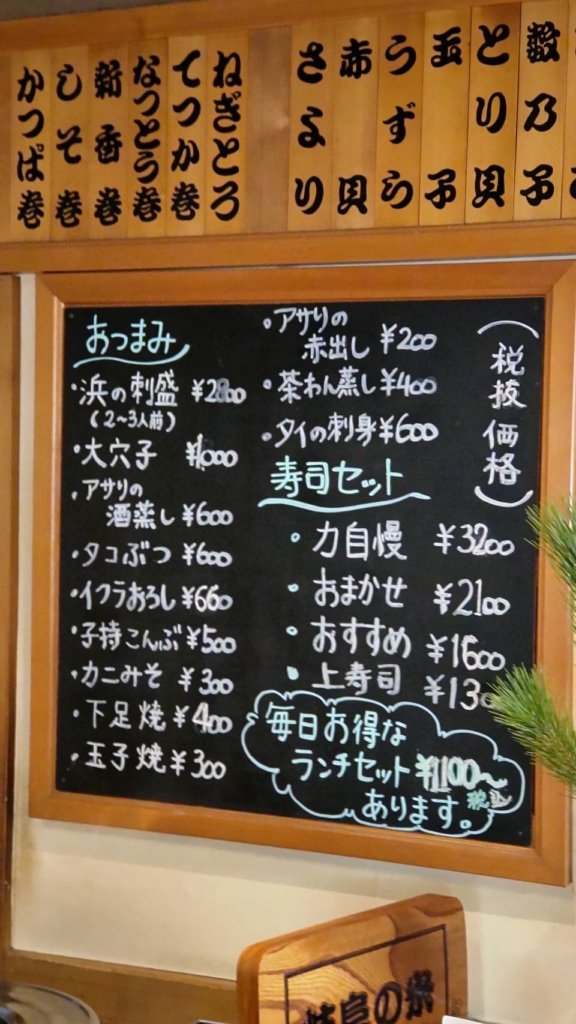 数乃子
とり貝
玉子
うずら
赤貝
さより
ねぎとろ
てつか巻
なっとう巻
新香巻
しそ巻
かっぱ巻
(税抜価格)
おつまみ
・浜の刺盛 ¥2800
(2〜3人前)
・大穴子 ¥1000
・アサリの
酒蒸し ¥600
・タコぶつ ¥600
・イクラおろし ¥660
・子持こんぶ ¥500
・カニみそ ¥300
・下足焼 ¥400
・玉子焼 ¥300
・アサリの
赤出し ¥200
・茶わん蒸し ¥400
・タイの刺身 ¥600
寿司セット
・力自慢 ¥3200
・おまかせ ¥2100
・おすすめ ¥1600
・上寿司 ¥130
毎日お得な
ランチセット ¥1100〜
あります。
の米